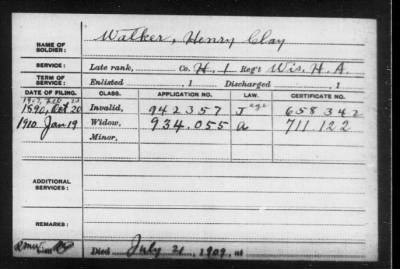 NAME OF SOLDIER: Walker, Henry Clay
SERVICE: Late rank, Co. H. 1 Reg't Wis. H. A.
TERM OF SERVICE: Enlisted , 1 Discharged , 1
DATE OF FILING. CLASS. APPLICATION NO. LAW. CERTIFICATE NO.
1890, Oct 20 Invalid, 942357 J 658342
1910 Jan 19 Widow, 934.055 a 711122
Minor,
ADDITIONAL SERVICES:
REMARKS:
Died July 21, 1909, at